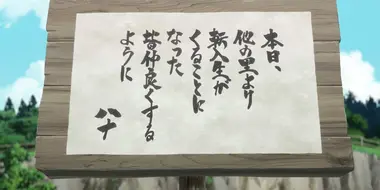 本日、
他の里より
新入生が
くることに
なった
皆仲良くする
ように
八千